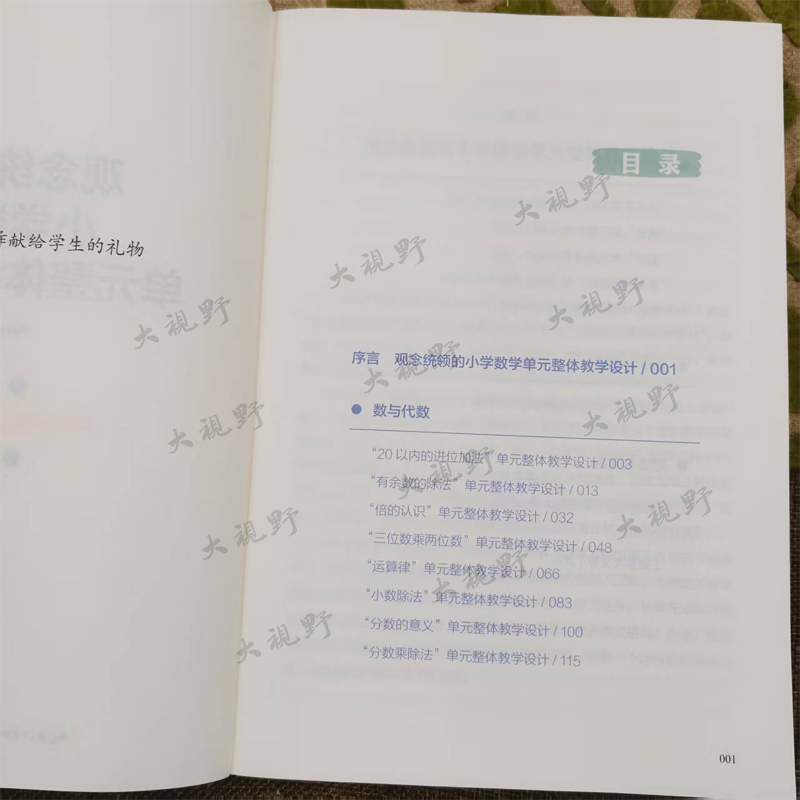 献给学生的礼物
目录
序言 观念统领的小学数学单元整体教学设计 / 001
● 数与代数
“20 以内的进位加法”单元整体教学设计 / 003
“有余数的除法”单元整体教学设计 / 013
“倍的认识”单元整体教学设计 / 032
“三位数乘两位数”单元整体教学设计 / 048
“运算律”单元整体教学设计 / 066
“小数除法”单元整体教学设计 / 083
“分数的意义”单元整体教学设计 / 100
“分数乘除法”单元整体教学设计 / 115
001
大视野
大视野
大视野
大视野
大视野
大视野
大视野
大视野
大视野
大视野
大视野
大视野